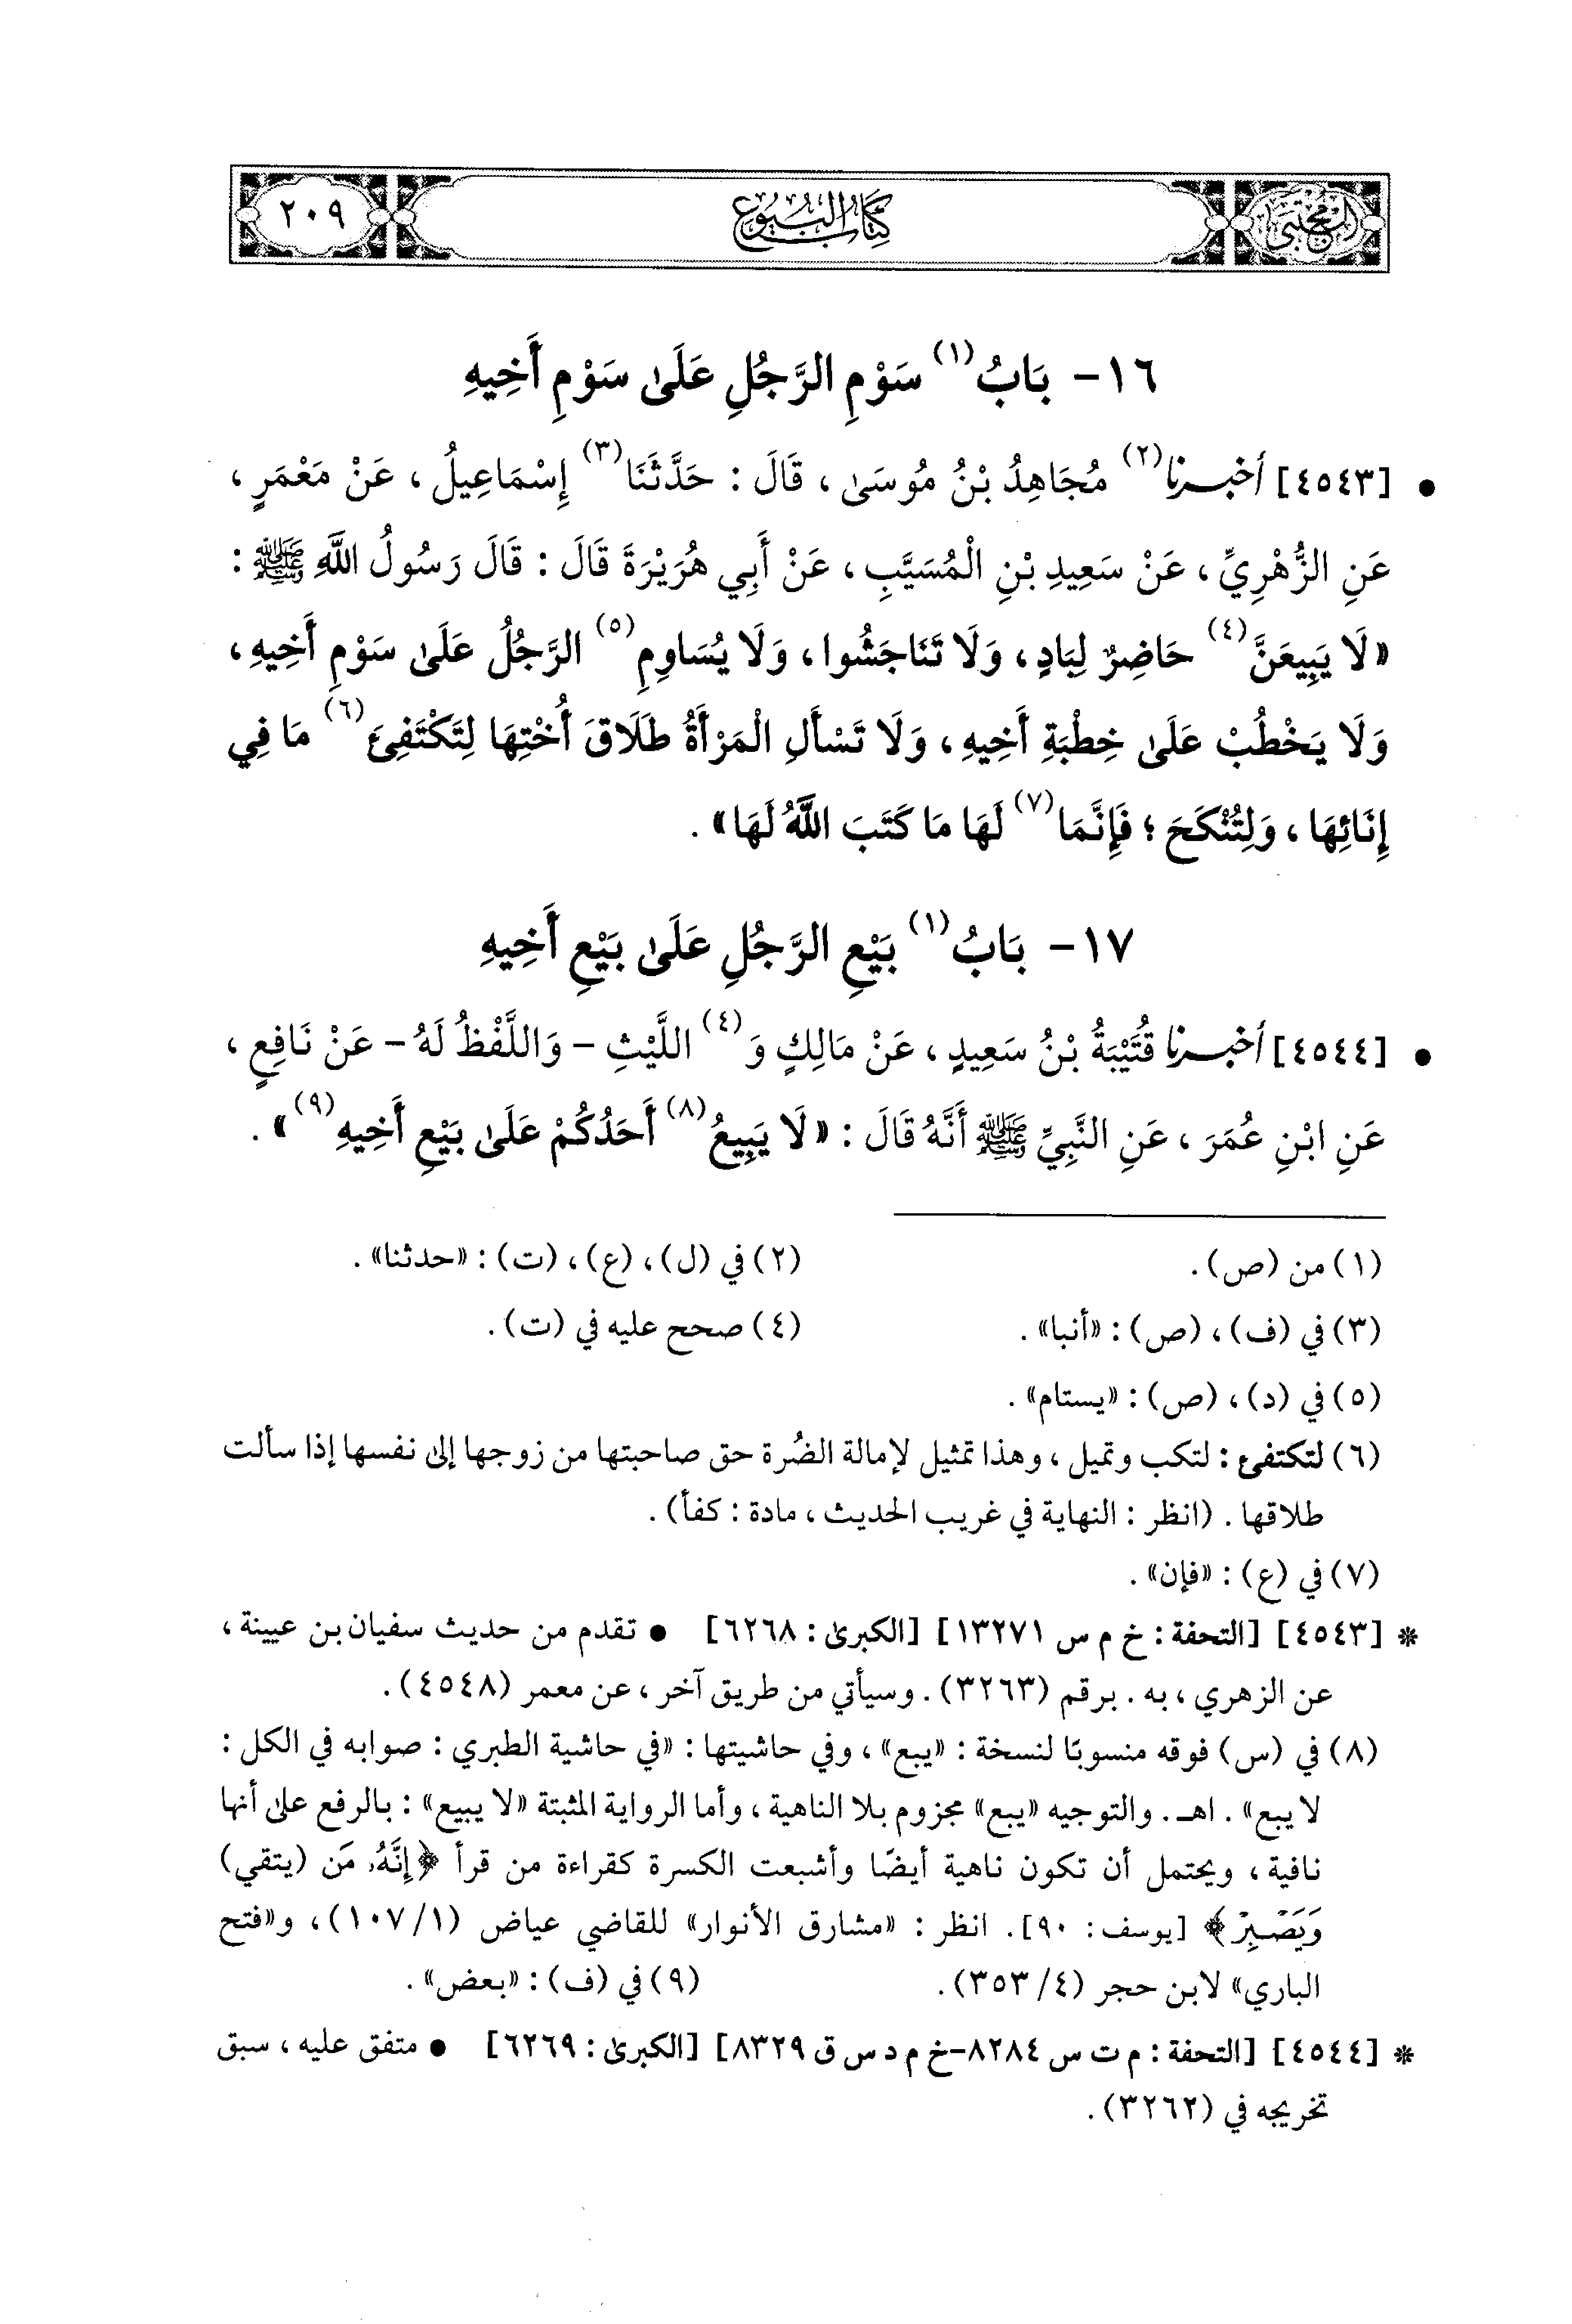 المجتبى كتاب البيوع ٢٠٩
١٦- بَابُ(١) سَوْمِ الرَّجُلِ عَلَىٰ سَوْمِ أَخِيهِ
• [٤٥٤٣] أخبرنا(٢) مُجَاهِدُ بْنُ مُوسَىٰ، قَالَ: حَدَّثَنَا(٣) إِسْمَاعِيلُ، عَنْ مَعْمَرٍ،
عَنِ الزُّهْرِيِّ، عَنْ سَعِيدِ بْنِ الْمُسَيَّبِ، عَنْ أَبِي هُرَيْرَةَ قَالَ: قَالَ رَسُولُ اللَّهِ ﷺ:
«لَا يَبِيعَنَّ(٤) حَاضِرٌ لِبَادٍ، وَلَا تَنَاجَشُوا، وَلَا يُسَاوِمِ(٥) الرَّجُلُ عَلَىٰ سَوْمِ أَخِيهِ،
وَلَا يَخْطُبْ عَلَىٰ خِطْبَةِ أَخِيهِ، وَلَا تَسْأَلِ الْمَرْأَةُ طَلَاقَ أُخْتِهَا لِتَكْتَفِئَ(٦) مَا فِي
إِنَائِهَا، وَلِتُنْكَحَ؛ فَإِنَّمَا(٧) لَهَا مَا كَتَبَ اللَّهُ لَهَا».
١٧- بَابُ(١) بَيْعِ الرَّجُلِ عَلَىٰ بَيْعِ أَخِيهِ
• [٤٥٤٤] أخبرنا قُتَيْبَةُ بْنُ سَعِيدٍ، عَنْ مَالِكٍ وَ(٤) اللَّيْثِ - وَاللَّفْظُ لَهُ - عَنْ نَافِعٍ،
عَنِ ابْنِ عُمَرَ، عَنِ النَّبِيِّ ﷺ أَنَّهُ قَالَ: «لَا يَبِيعُ(٨) أَحَدُكُمْ عَلَىٰ بَيْعِ أَخِيهِ(٩)».
(١) من (ص). (٢) في (ل)، (ع)، (ت): «حدثنا».
(٣) في (ف)، (ص): «أنبا». (٤) صحح عليه في (ت).
(٥) في (د)، (ص): «يستام».
(٦) لتكتفئ: لتكب وتميل، وهذا تمثيل لإمالة الضُرة حق صاحبتها من زوجها إلى نفسها إذا سألت
طلاقها. (انظر: النهاية في غريب الحديث، مادة: كفأ).
(٧) في (ع): «فإن».
* [٤٥٤٣] [التحفة: خ م س ١٣٢٧١] [الكبرىٰ: ٦٢٦٨] • تقدم من حديث سفيان بن عيينة،
عن الزهري، به. برقم (٣٢٦٣). وسيأتي من طريق آخر، عن معمر (٤٥٤٨).
(٨) في (س) فوقه منسوبًا لنسخة: «يبع»، وفي حاشيتها: «في حاشية الطبري: صوابه في الكل:
لا يبع». اهـ. والتوجيه «يبع» مجزوم بلا الناهية، وأما الرواية المثبتة «لا يبيع»: بالرفع على أنها
نافية، ويحتمل أن تكون ناهية أيضًا وأشبعت الكسرة كقراءة من قرأ ﴿إِنَّهُۥ مَن (يتقي)
وَيَصۡبِرۡ﴾ [يوسف: ٩٠]. انظر: «مشارق الأنوار» للقاضي عياض (١/١٠٧)، و«فتح
الباري» لابن حجر (٤/٣٥٣). (٩) في (ف): «بعض».
* [٤٥٤٤] [التحفة: م ت س ٨٢٨٤-خ م د س ق ٨٣٢٩] [الكبرىٰ: ٦٢٦٩] • متفق عليه، سبق
تخريجه في (٣٢٦٢).